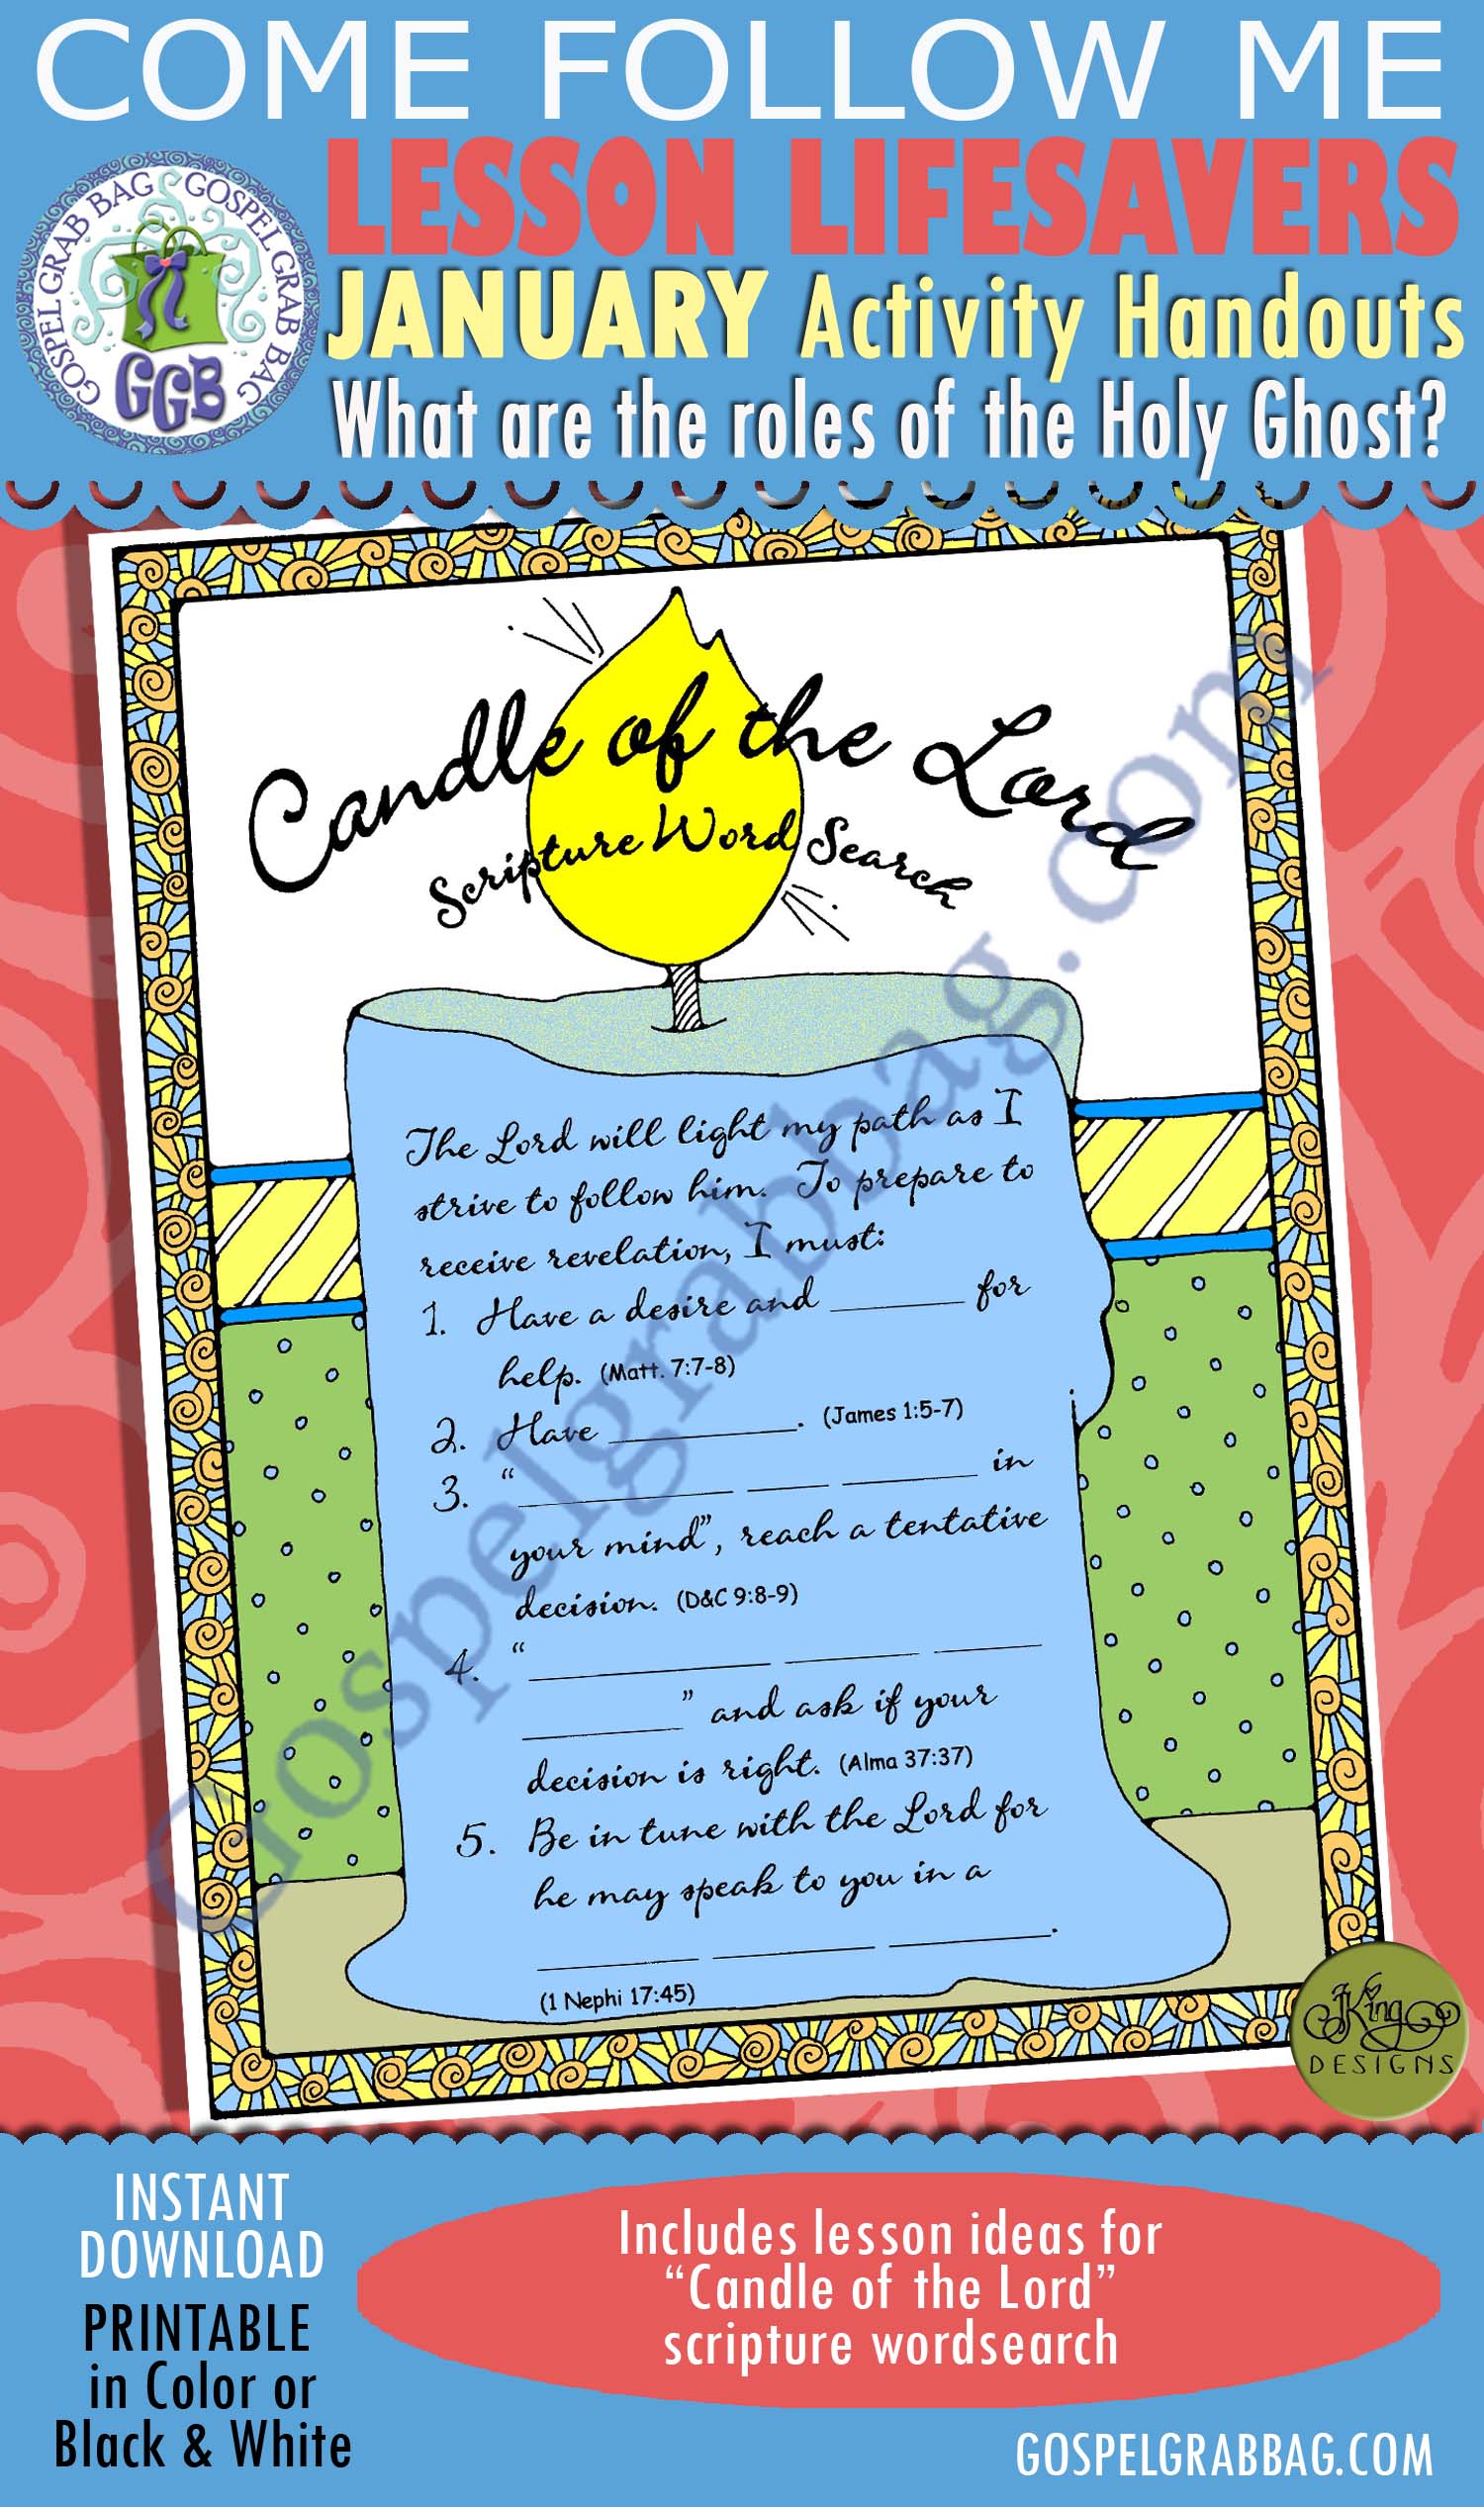 COME FOLLOW ME
LESSON LIFESAVERS
GOSPEL GRAB BAG GOSPEL GRAB BAG
GGB
JANUARY Activity Handouts
What are the roles of the Holy Ghost?
Candle of the Lord
Scripture Word Search
The Lord will light my path as I
strive to follow him. To prepare to
receive revelation, I must:
1. Have a desire and ________ for
help. (Matt. 7:7-8)
2. Have ___________. (James 1:5-7)
3. “___________ _____ ________ in
your mind”, reach a tentative
decision. (D&C 9:8-9)
4. “______________ ________ ______
_________” and ask if your
decision is right. (Alma 37:37)
5. Be in tune with the Lord for
he may speak to you in a
_________ _________ _________.
(1 Nephi 17:45)
Gospelgrabbag.com
JKing
DESIGNS
INSTANT
DOWNLOAD
PRINTABLE
in Color or
Black & White
Includes lesson ideas for
“Candle of the Lord”
scripture wordsearch
GOSPELGRABBAG.COM